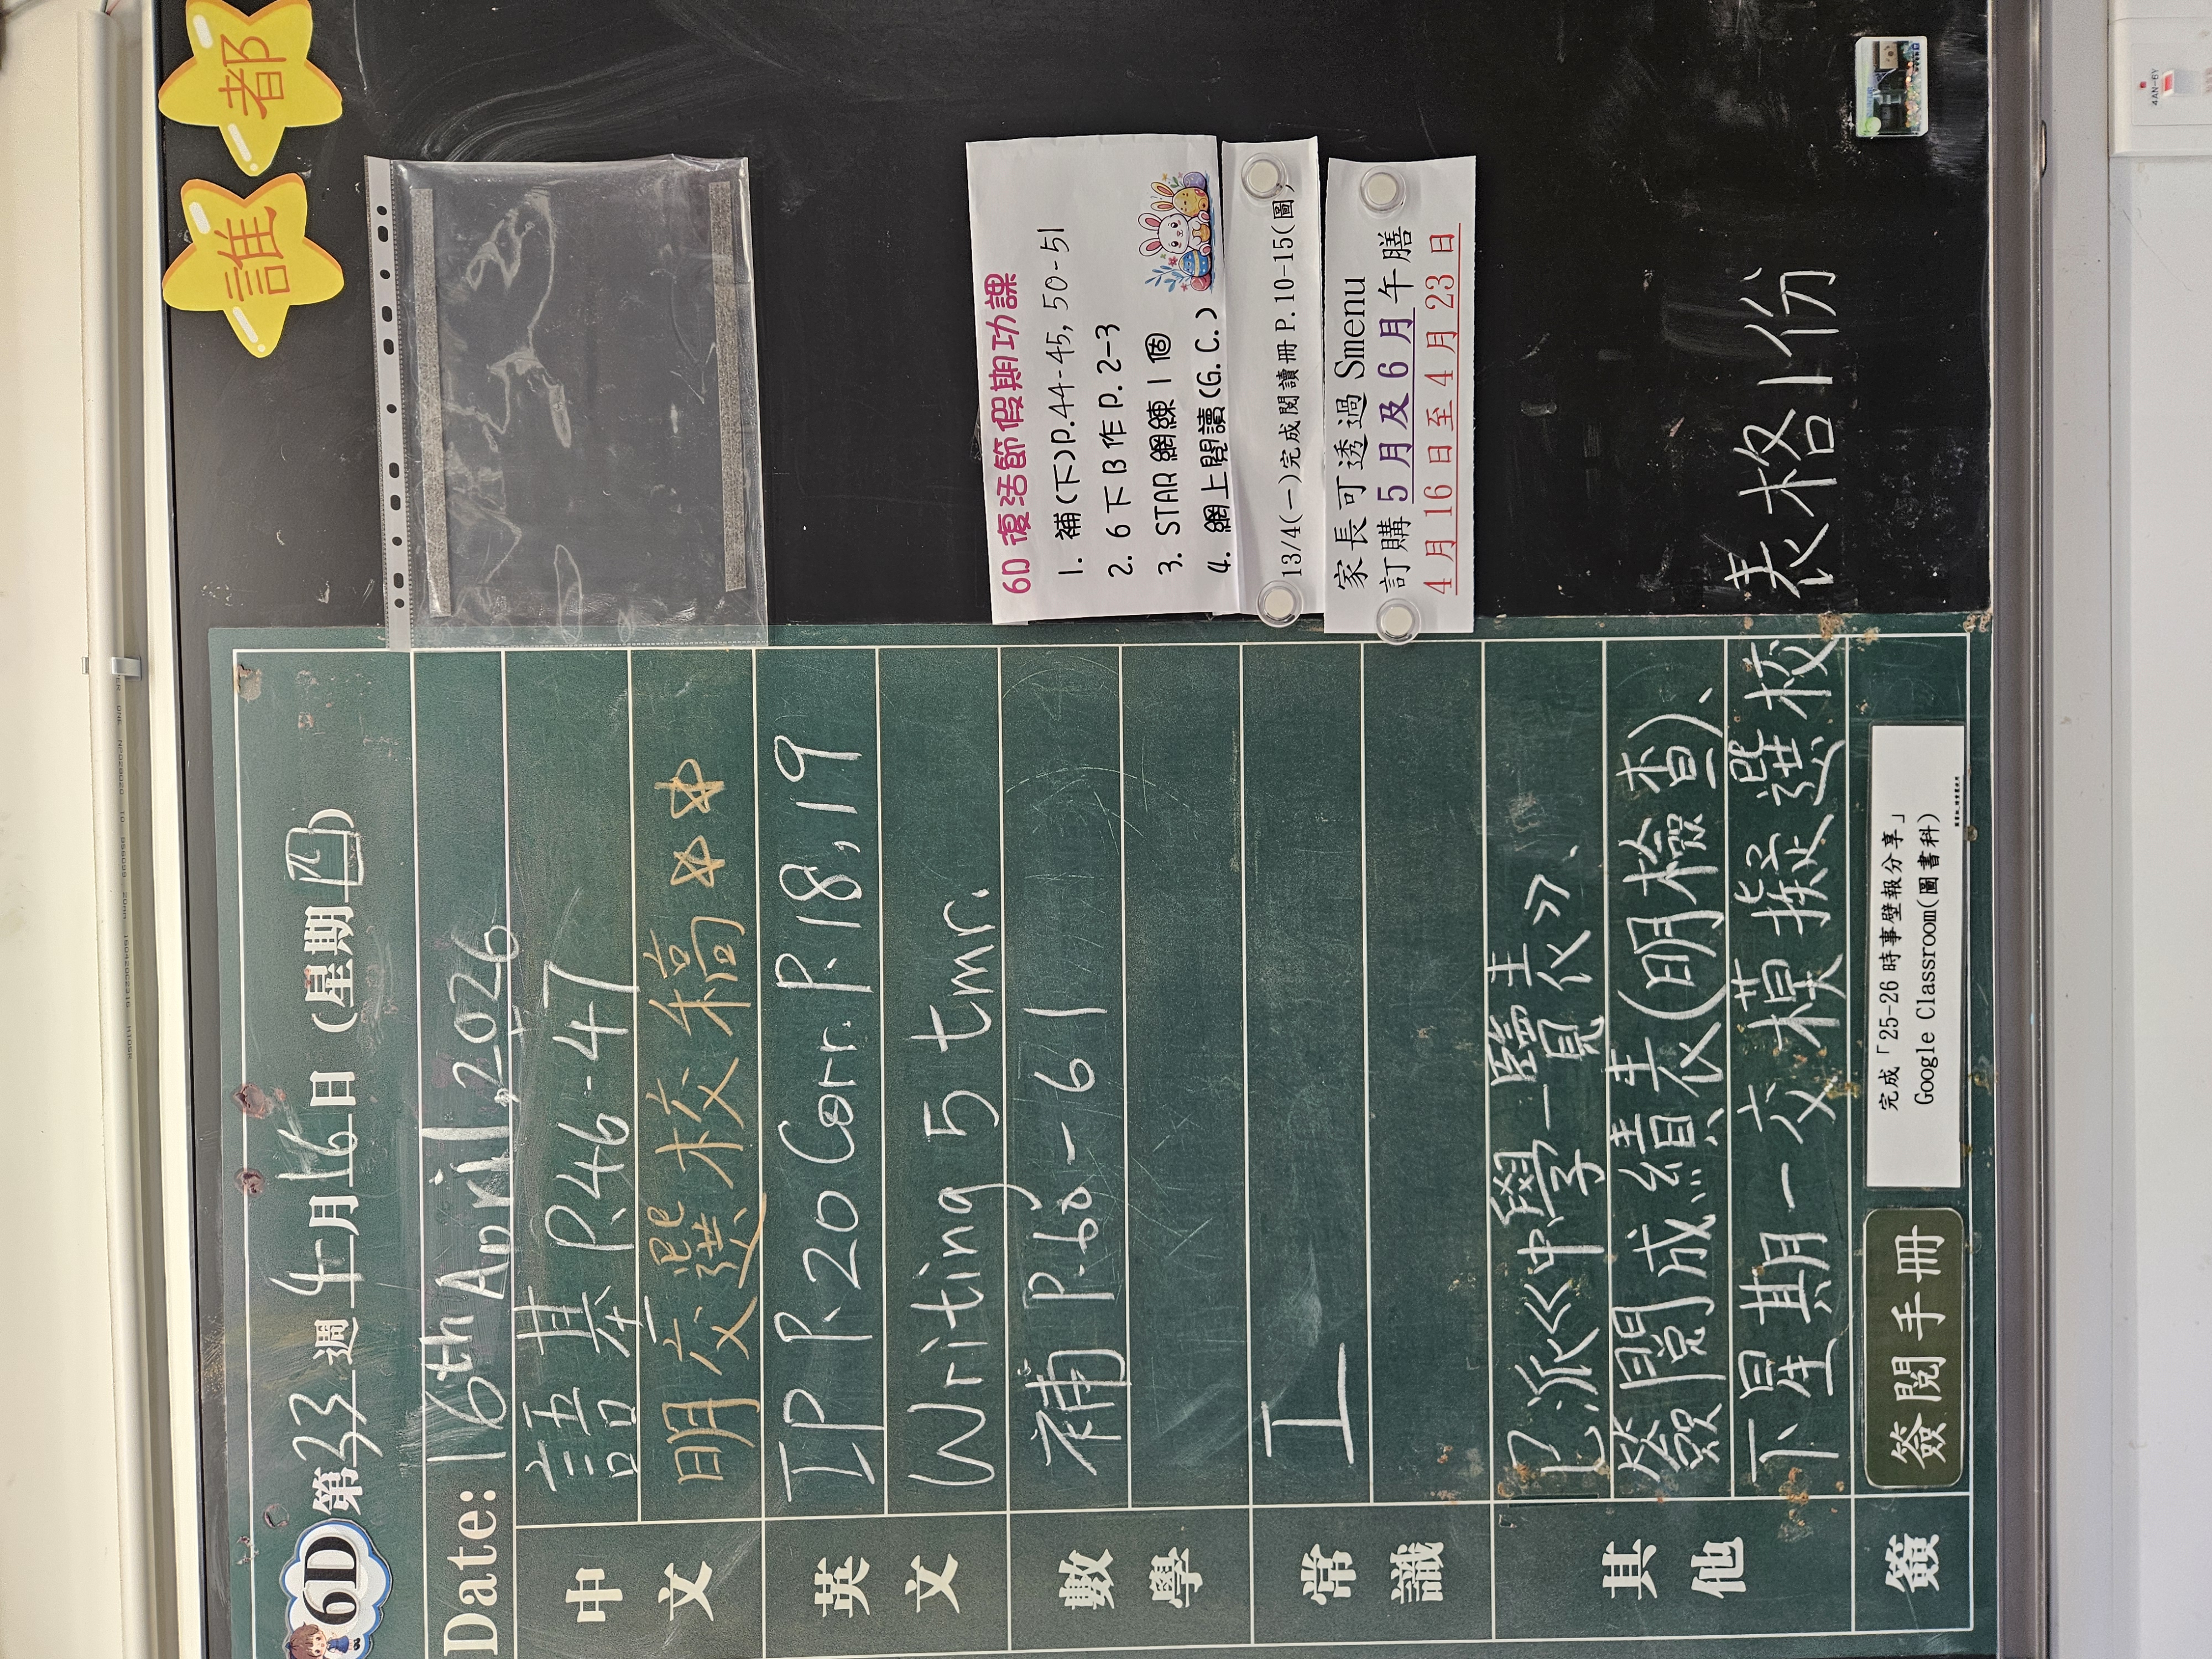 6D 第33週 4月16日 (星期四)
Date: 16th April, 2026
中文
語基 P.46-47
明交選校稿 ☆☆
英文
IP P.20 Corr. P.18, 19
Writing 5 tmr.
數學
補 P.60-61
常識
工
其他
已派《中學一覽表》、
簽閱成績表(明檢查)、
下星期一交模擬選校表格1份
簽
簽閱手冊
完成「25-26 時事壁報分享」
Google Classroom(圖書科)
誰都
6D 復活節假期功課
1. 補(下)P.44-45, 50-51
2. 6下B作 P.2-3
3. STAR 網練1個
4. 網上閱讀(G.C.)
13/4(一)完成閱讀冊 P.10-15(圖)
家長可透過 Smenu
訂購 5月及6月午膳
4月16日至4月23日
4AN-6Y